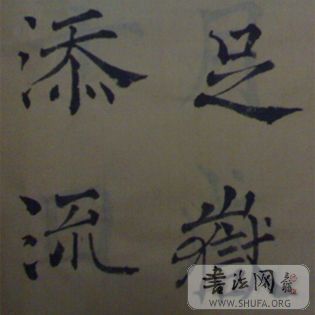 足嶽
添流
書法网
WWW.SHUFA.ORG